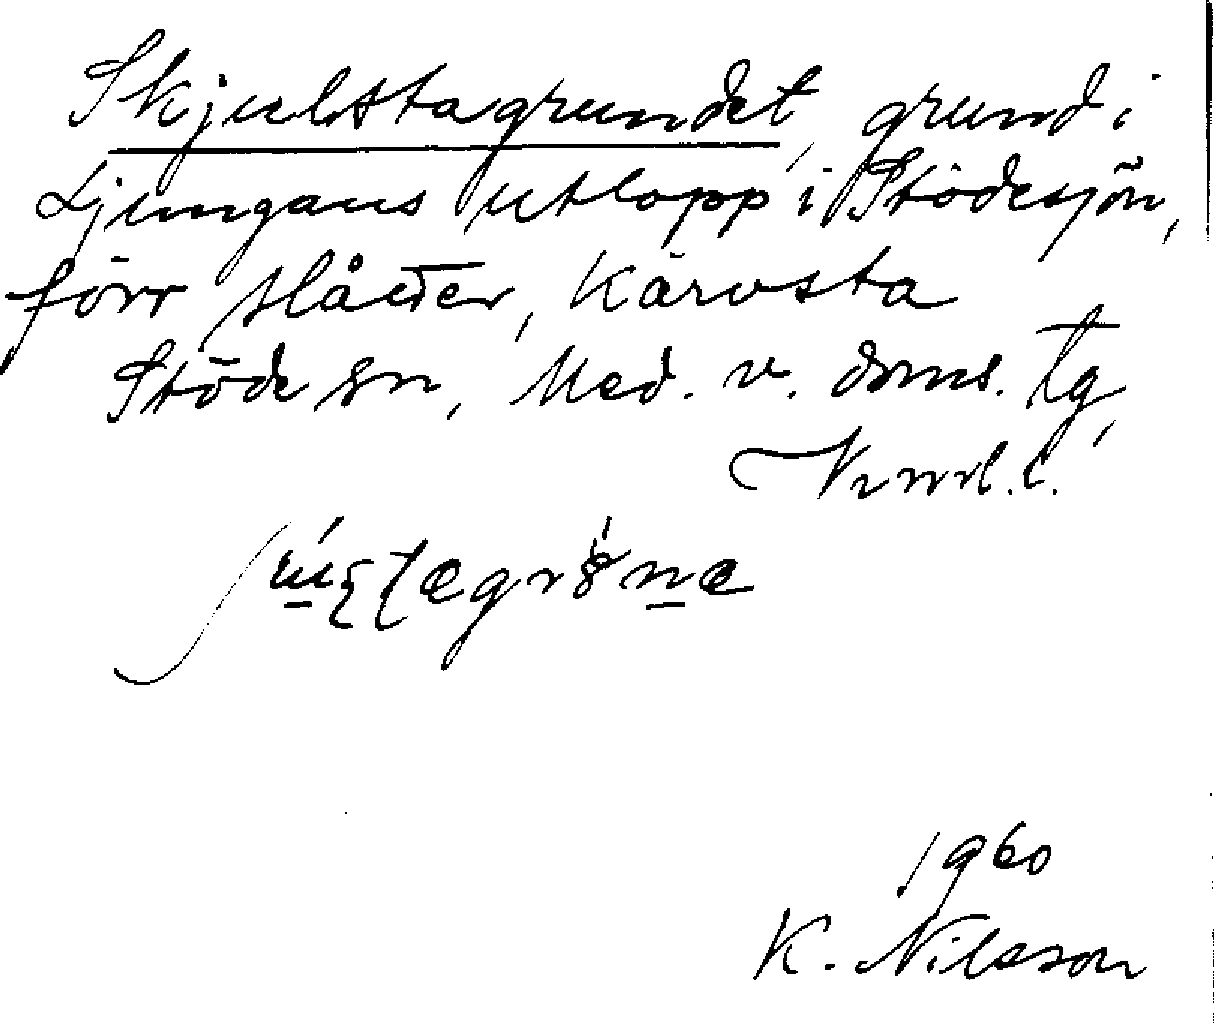 Skjulstagrundet, grund i
Ljungans utlopp i Stödesjön,
förr slåtter, Kärvsta
Stöde sn, Med. v. doms. tg,
Vnrl. l.
1960
K. Nilsson